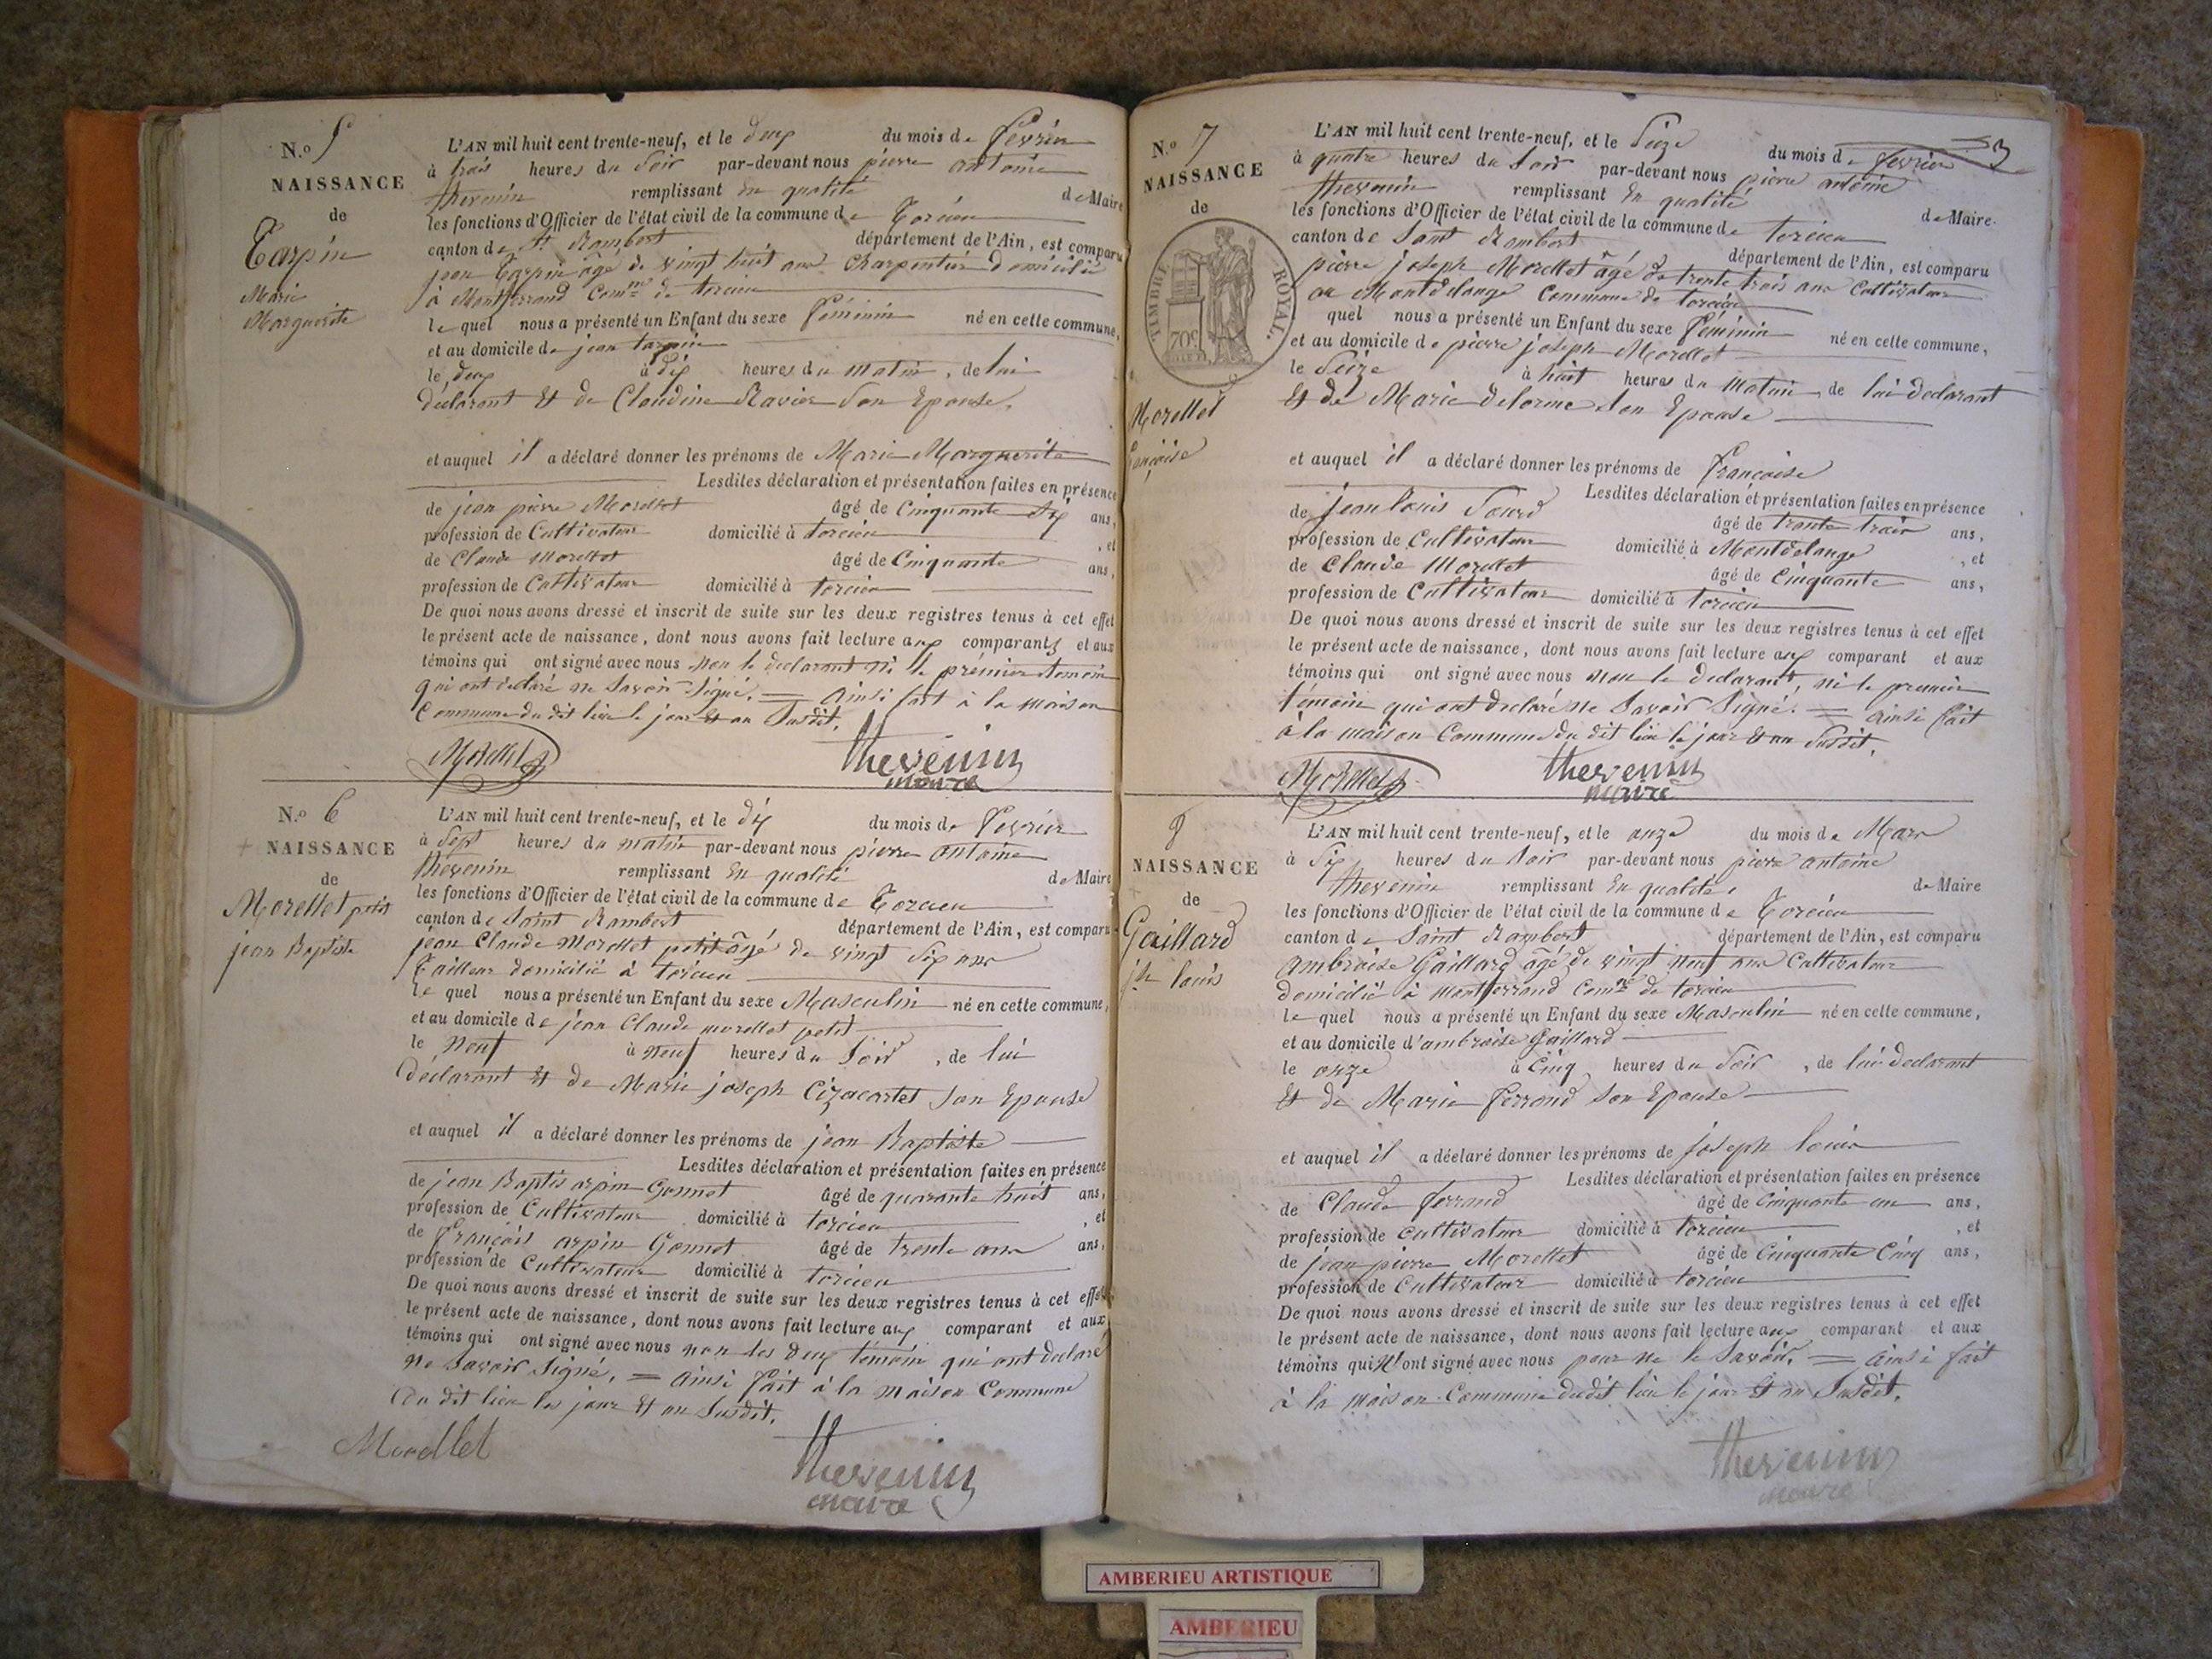 N.o 5
NAISSANCE
de
Tarpin
Marie
Marguerite
L'AN mil huit cent trente-neuf, et le deux du mois de fevrier
à trois heures du Soir par-devant nous pierre antoine
thevenin remplissant En qualité de Maire
les fonctions d'Officier de l'état civil de la commune de Torcieu
canton de St Rambert département de l'Ain, est comparu
jean Tarpin âgé de vingt huit ans Charpentier domicilié
à Montferrand Comne de torcieu
le quel nous a présenté un Enfant du sexe féminin né en cette commune,
et au domicile de jean tarpin
le deux à dix heures du matin, de lui
déclarant Et de Claudine Ravier Son Epouse.
et auquel il a déclaré donner les prénoms de Marie Marguerite
Lesdites déclaration et présentation faites en présence
de jean pierre Morellet âgé de Cinquante Six ans,
profession de Cultivateur domicilié à torcieu , et
de Claude Morellet âgé de Cinquante ans,
profession de Cultivateur domicilié à torcieu
De quoi nous avons dressé et inscrit de suite sur les deux registres tenus à cet effet
le présent acte de naissance, dont nous avons fait lecture aux comparants et aux
témoins qui ont signé avec nous non le declarant ni le prémier témoin
qui ont declaré ne Savoir Signé. = ainsi fait à la maison
Commune du dit lieu le jour Et an Susdit.
Morellet
thevenin
maire
N.o 6
NAISSANCE
de
Morellet petit
jean Baptiste
L'AN mil huit cent trente-neuf, et le dix du mois de fevrier
à Sept heures du matin par-devant nous pierre antoine
thevenin remplissant En qualité de Maire
les fonctions d'Officier de l'état civil de la commune de Torcieu
canton de Saint Rambert département de l'Ain, est comparu
jean Claude Morellet petit âgé de vingt Six ans
Tailleur domicilié à torcieu
le quel nous a présenté un Enfant du sexe Masculin né en cette commune,
et au domicile de jean Claude morellet petit
le neuf à neuf heures du Soir, de lui
déclarant Et de Marie joseph Cizacartet Son Epouse
et auquel il a déclaré donner les prénoms de jean Baptiste
Lesdites déclaration et présentation faites en présence
de jean Baptis arpin Gonnet âgé de quarante huit ans,
profession de Cultivateur domicilié à torcieu , et
de François arpin Gonnet âgé de trente ans ans,
profession de Cultivateur domicilié à torcieu
De quoi nous avons dressé et inscrit de suite sur les deux registres tenus à cet effet
le présent acte de naissance, dont nous avons fait lecture aux comparant et aux
témoins qui ont signé avec nous non les deux témoin qui ont declaré
ne Savoir Signé. = ainsi fait à la maison Commune
du dit lieu les jour Et an Susdit.
Morellet
thevenin
maire
3
N.o 7
NAISSANCE
de
TIMBRE ROYAL.
70c
Morellet
L'AN mil huit cent trente-neuf, et le Seize du mois de fevrier
à quatre heures du Soir par-devant nous pierre antoine
thevenin remplissant En qualité de Maire.
les fonctions d'Officier de l'état civil de la commune de torcieu
canton de Saint Rambert département de l'Ain, est comparu
pierre joseph Morellet âgé de trente trois ans Cultivateur
au Montdelange Commune de torcieu
quel nous a présenté un Enfant du sexe féminin né en cette commune,
et au domicile de pierre joseph Morellet
le Seize à huit heures du matin de lui declarant
Et de Marie delorme Son Epouse
et auquel il a déclaré donner les prénoms de françoise
Lesdites déclaration et présentation faites en présence
de jean louis Sourd âgé de trente trois ans,
profession de Cultivateur domicilié à Montdelange , et
de Claude Morellet âgé de Cinquante ans,
profession de Cultivateur domicilié à torcieu
De quoi nous avons dressé et inscrit de suite sur les deux registres tenus à cet effet
le présent acte de naissance, dont nous avons fait lecture aux comparant et aux
témoins qui ont signé avec nous non le declarant, ni le premier
témoin qui ont declaré ne Savoir Signé. = ainsi fait
à la maison Commune du dit lieu le jour Et an Susdit.
Morellet
thevenin
maire
8
NAISSANCE
de
Gaillard
jh louis
L'AN mil huit cent trente-neuf, et le onze du mois de Mars
à Six heures du Soir par-devant nous pierre antoine
thevenin remplissant En qualité de Maire
les fonctions d'Officier de l'état civil de la commune de Torcieu
canton de Saint Rambert département de l'Ain, est comparu
ambroise Gaillard âgé de vingt neuf ans Cultivateur
domicilié à Montferrand Comne de torcieu
le quel nous a présenté un Enfant du sexe Masculin né en cette commune,
et au domicile d'ambroise Gaillard
le onze à Cinq heures du Soir, de lui declarant
Et de Marie ferrand Son Epouse
et auquel il a déclaré donner les prénoms de joseph louis
Lesdites déclaration et présentation faites en présence
de Claude ferrand âgé de Cinquante un ans,
profession de cultivateur domicilié à torcieu , et
de jean pierre Morellet âgé de Cinquante Cinq ans,
profession de Cultivateur domicilié à torcieu
De quoi nous avons dressé et inscrit de suite sur les deux registres tenus à cet effet
le présent acte de naissance, dont nous avons fait lecture aux comparant et aux
témoins qui n'ont signé avec nous pour ne le Savoir. = ainsi fait
à la maison Commune dudit lieu le jour Et an Susdit.
thevenin
maire
AMBERIEU ARTISTIQUE
AMBERIEU